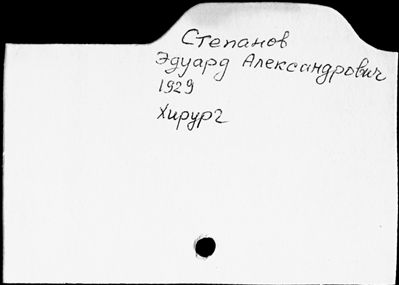 Степанов
Эдуард Александрович
1929
Хирург